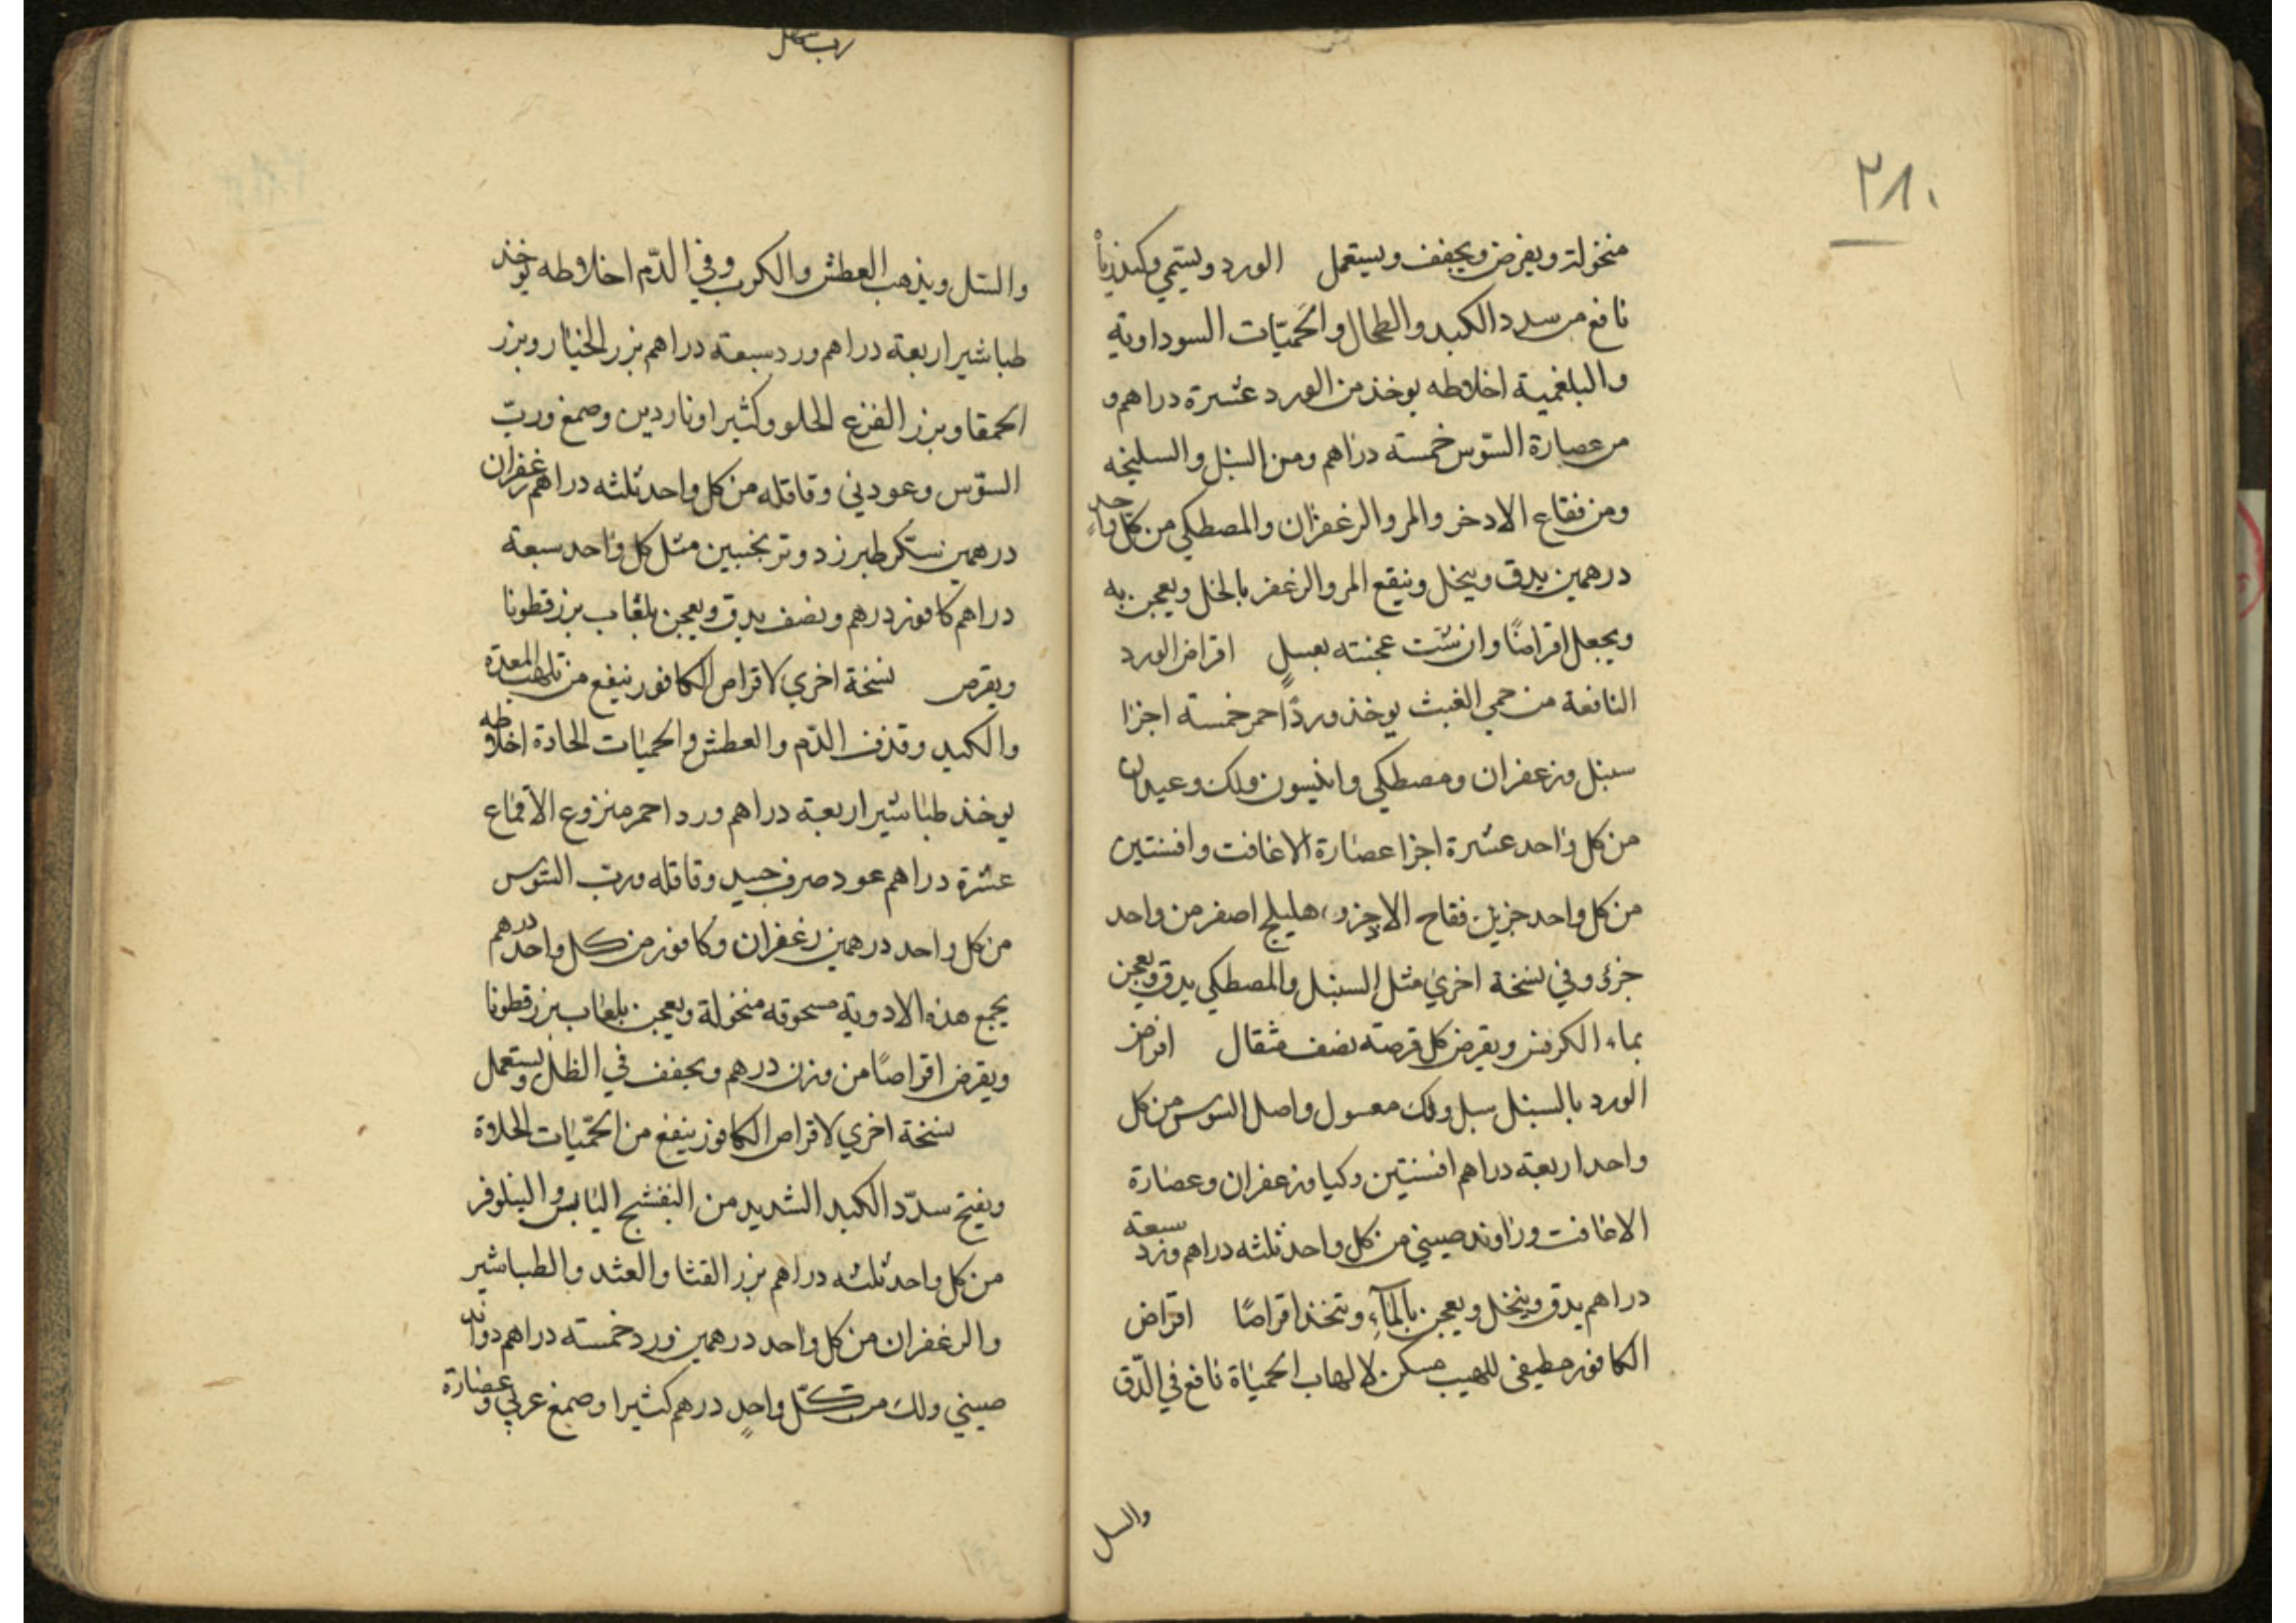 ٢٨٠
منخولة ويقرض ويجفف ويستعمل الورد ويسمي
نافع من سدد الكبد والطحال والحميّات السوداوية
والبلغمية اخلاطه يوخذ من الورد عشرة دراهم و
من عصارة السّوس خمسة دراهم ومن السنبل والسليخه
ومن فقاع الادخر والمر والزعفران والمصطكي من كل واحد
درهمين يدق وينخل وينقع المر والزعفر بالخل ويعجن به
ويجعل اقراصًا وان شئت عجنته بعسلٍ اقراض الورد
النافعة من حمي الغبث يوخذ وردًا احمر خمسة اجزا
سنبل وزعفران ومصطكي وانيسون ولك وعيدان
من كل واحد عشرة اجزا عصارة الاغافت وافسنتين
من كل واحد جزين فقاح الاذخر وهليلج اصفر من واحد
جزؤ وفي نسخة اخري مثل السنبل والمصطكي يدق ويعجن
بماء الكرفس ويقرض كل قرصة نصف مثقال اقراض
الورد بالسنبل سبل ولك معسول واصل السوس من كل
واحد اربعة دراهم افسنتين وكيا وزعفران وعصارة
الاغافت وراوند صيني من كل واحد ثلثه دراهم ورد سبعة
دراهم يدق وينخل ويعجن بالمآءِ وتتخذ اقراصًا اقراض
الكافور مطيفي للهيب مسكن لالهاب الحمياة نافع في الدّق
والسل
والسّل ويذهب العطش والكرب وفي الدّم اخلاطه يوخذ
طباشير اربعة دراهم ورد سبعة دراهم بزر الخيار وبزر
الحمقا وبزر القرع الحلو وكثيرا وناردين وصمغ وربّ
السوّس وعود ني وقاقله من كل واحد ثلثه دراهم زعفران
درهمين سكّر طبرزد وترنجبين مثل كل واحد سبعة
دراهم كافور درهم ونصف يدق ويعجن بلعاب بزر قطونا
ويقرص نسخة اخري لاقراص الكافور ينفع من تلهب المعدة
والكبد وقذف الدّم والعطش والحميات الحادة اخلاطه
يوخذ طباشير اربعة دراهم ورد احمر منزوع الاقماع
عشرة دراهم عود صرف جيد وقاقله ورب السّوس
من كل واحد درهمين زعفران وكافور من كل واحد درهم
يجمع هذه الادوية مسحوقه منخولة ويعجن بلعاب بزر قطونا
ويقرض اقراصًا من وزن درهم ويجفف في الظل ويستعمل
نسخة اخري لاقراص الكافور ينفع من الحمّيات الحادة
ويفتح سدّد الكبد الشديد من البنفشج اليابس والينلوفر
من كل واحد ثلثه دراهم بزر القثا والعثد والطباشير
والزعفران من كل واحد درهمين ورد خمسة دراهم
صيني ولك من كلّ واحدٍ درهم كثيرا وصمغ عربي وعصارة